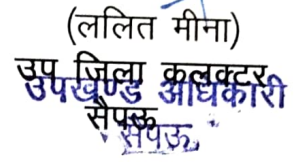 (ललित मीना)
उप जिला कलक्टर
उपखण्ड अधिकारी
सैपऊ
सैपऊ